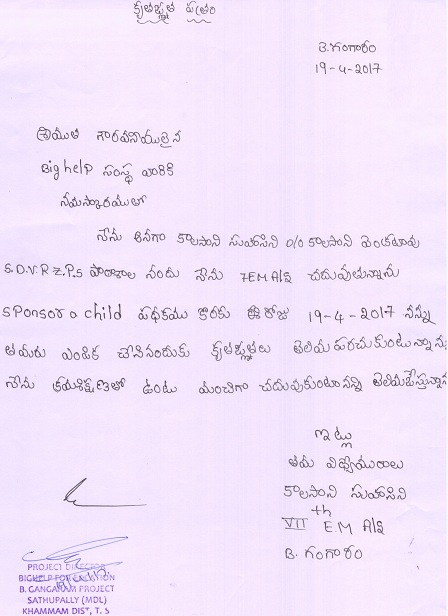 కృతజ్ఞత పత్రం
B.గంగారం
19-4-2017
శ్రీయుత గౌరవనీయులైన
Big help సంస్థ వారికి
నమస్కారములతో
నేను అనగా కాలసాని సుహాసిని D/o కాలసాని వెంకటరావు
S.D.V.R Z.P.S పాఠశాల నందు నేను 7EM A/s చదువుతున్నాను
SPonsor a child పథకము కొరకు ఈ రోజు 19-4-2017 నన్ను
తమరు ఎంపిక చేసినందుకు కృతజ్ఞతలు తెలియపరచుకుంటున్నాను
నేను క్రమశిక్షణతో ఉంటు మంచిగా చదువుకుంటానని తెలియజేస్తున్నాను
ఇట్లు
తమ విధేయురాలు
కాలసాని సుహాసిని
VII th E.M A/s
B. గంగారం
PROJECT DIRECTOR
BIGHELP FOR EDUCATION
B. GANGARAM PROJECT
SATHUPALLY (MDL)
KHAMMAM DIST, T. S